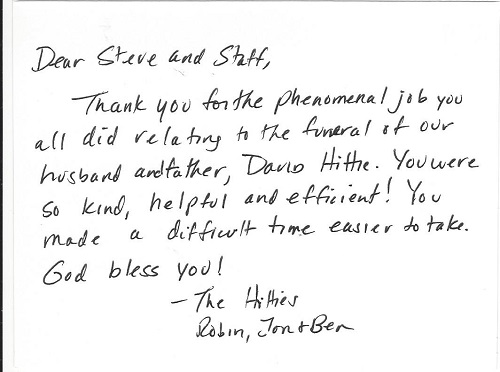 Dear Steve and Staff,
Thank you for the phenomenal job you
all did relating to the funeral of our
husband and father, David Hittie. You were
so kind, helpful and efficient! You
made a difficult time easier to take.
God bless you!
– The Hitties
Robin, Jon + Ben